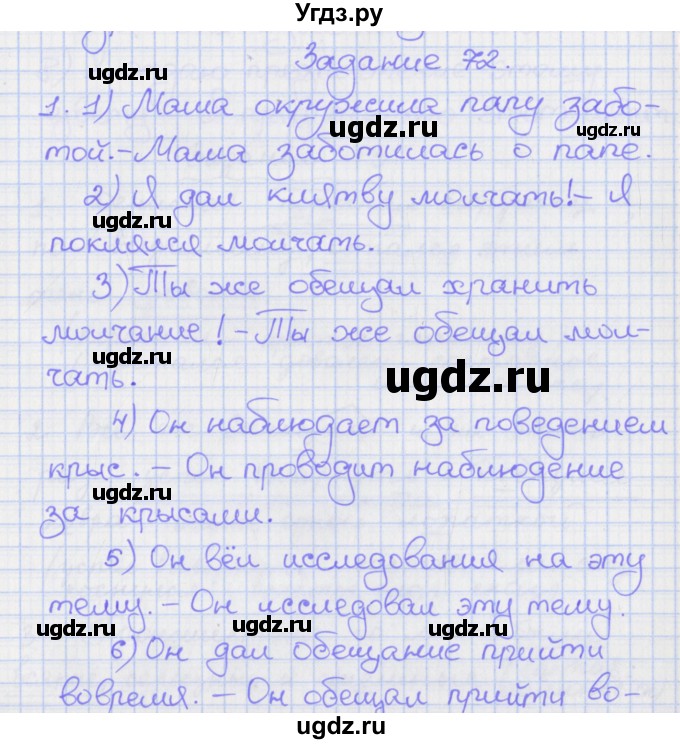 Угдз.ру
Задание 72.
1. 1) Мама окружила папу забо-
той.-Мама заботилась о папе.
2) Я дал клятву молчать!- Я
поклялся молчать.
3) Ты же обещал хранить
молчание! - Ты же обещал мол-
чать.
4) Он наблюдает за поведением
крыс. - Он проводит наблюдение
за крысами.
5) Он вёл исследования на эту
тему. - Он исследовал эту тему.
6) Он дал обещание прийти
вовремя. - Он обещал прийти во-
ugdz.ru
ugdz.ru
ugdz.ru
ugdz.ru
ugdz.ru
ugdz.ru
ugdz.ru
ugdz.ru
ugdz.ru
ugdz.ru
ugdz.ru